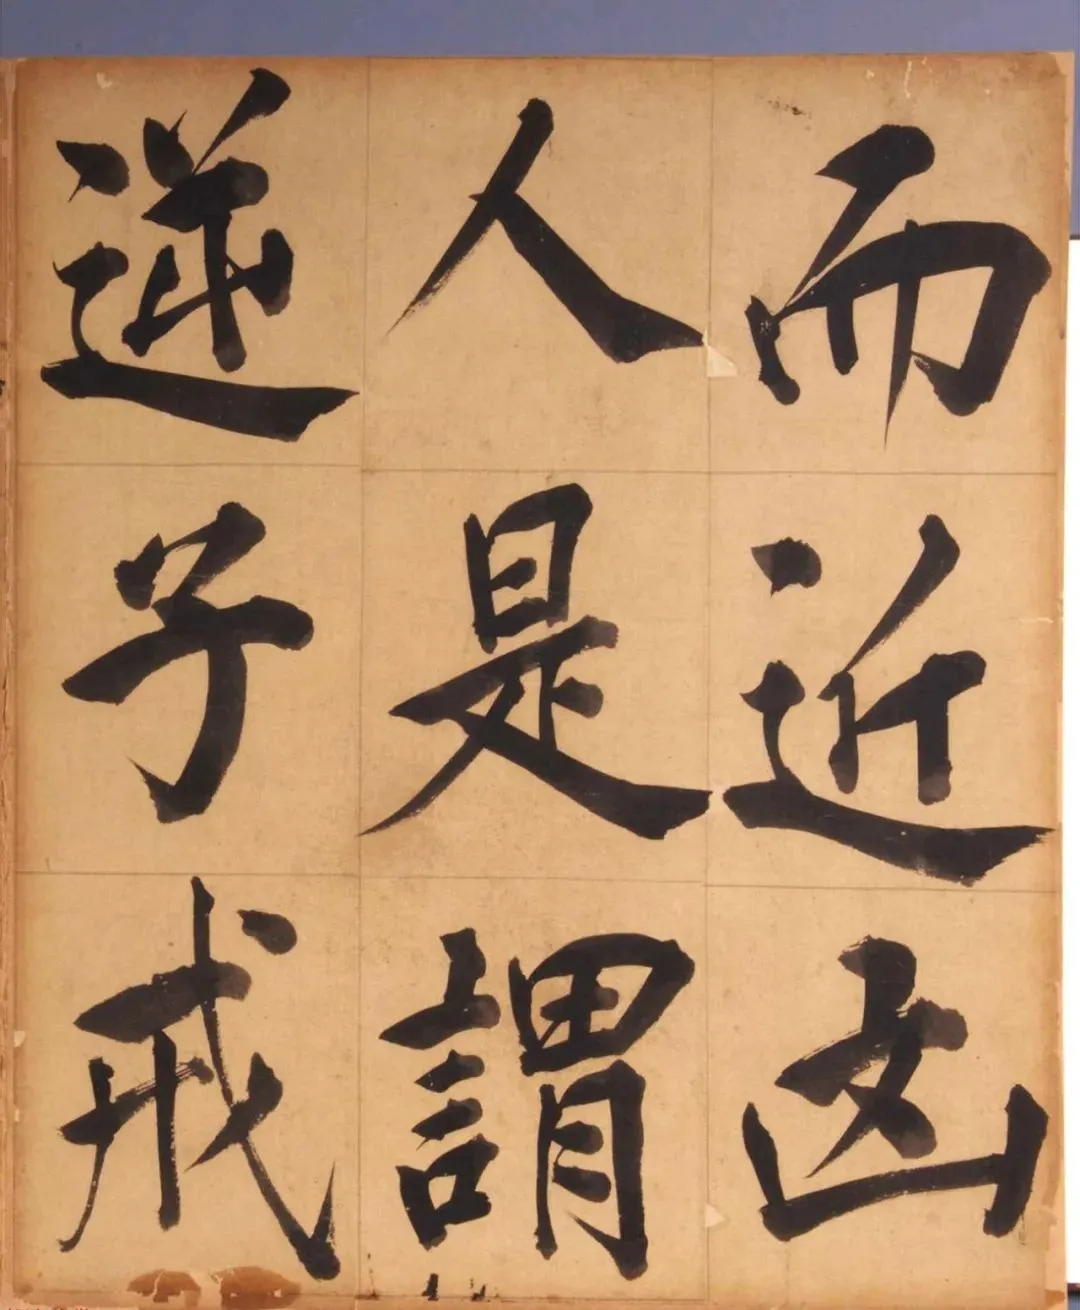 而近凶
人是謂
逆子戒